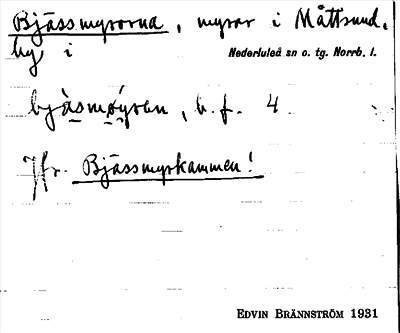 Bjässmyrorna, myrar i Måttsund,
by i Nederluleå sn o. tg. Norrb. l.
bjàsmýran, b. f. 4
Jfr. Bjässmyrkammen!
EDVIN BRÄNNSTRÖM 1931